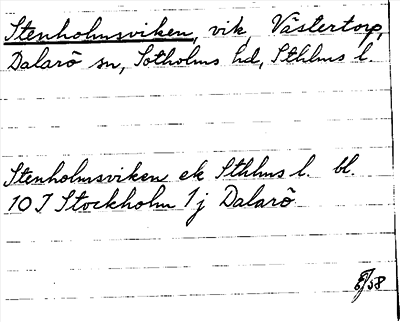 Stenholmsviken, vik, Västertorp,
Dalarö sn, Sotholms hd, Sthlms l.
Stenholmsviken ek Sthlms l. bl.
10 I Stockholm 1j Dalarö